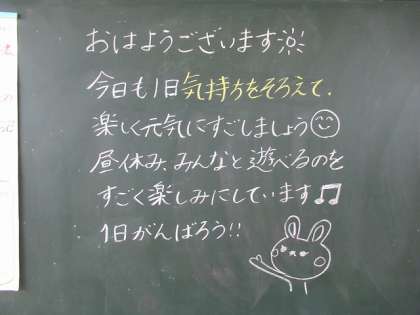 おはようございます
今日も1日気持ちをそろえて、
楽しく元気にすごしましょう
昼休み、みんなと遊べるのを
すごく楽しみにしています🎵
1日がんばろう!!